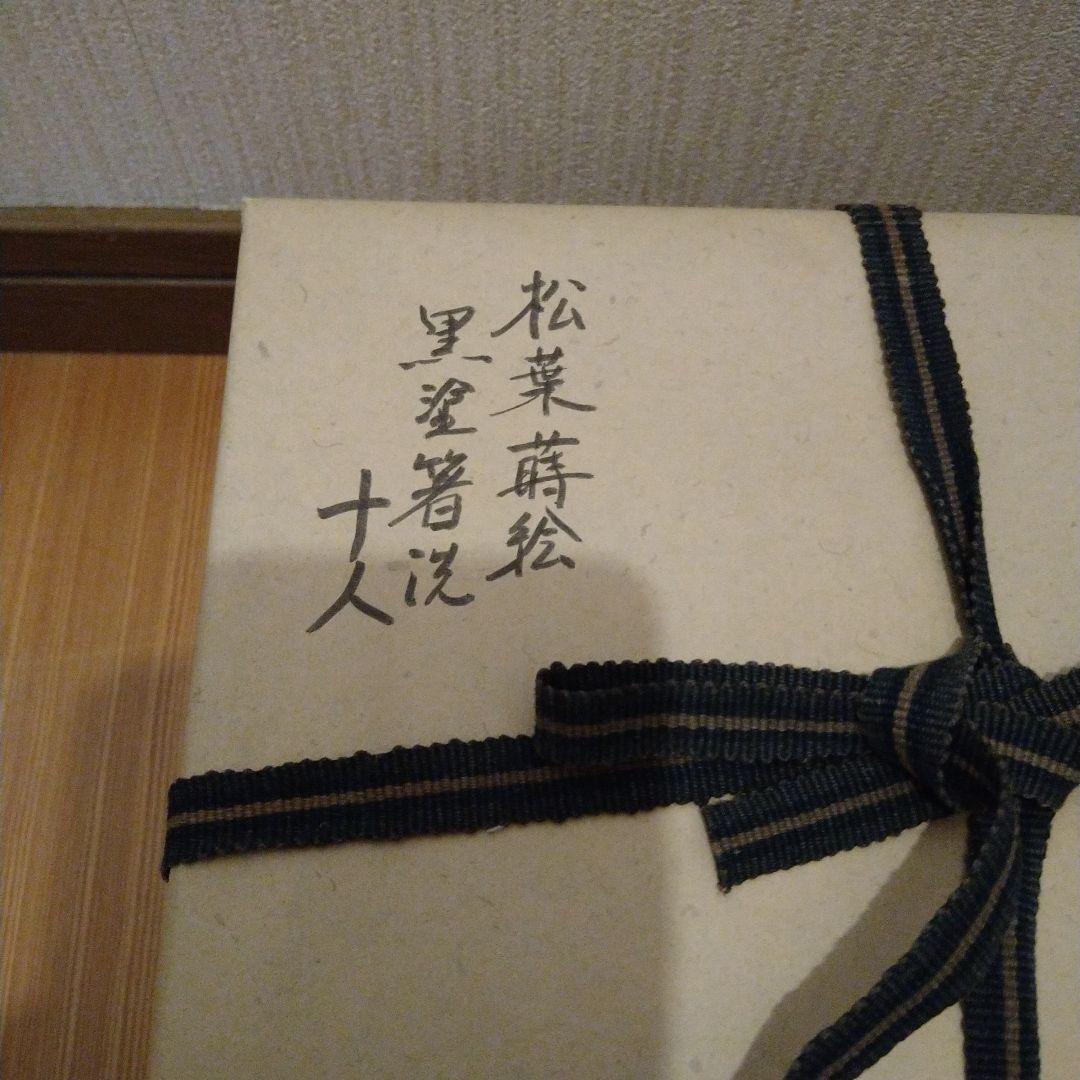 松葉蒔絵
黒塗箸洗
十人